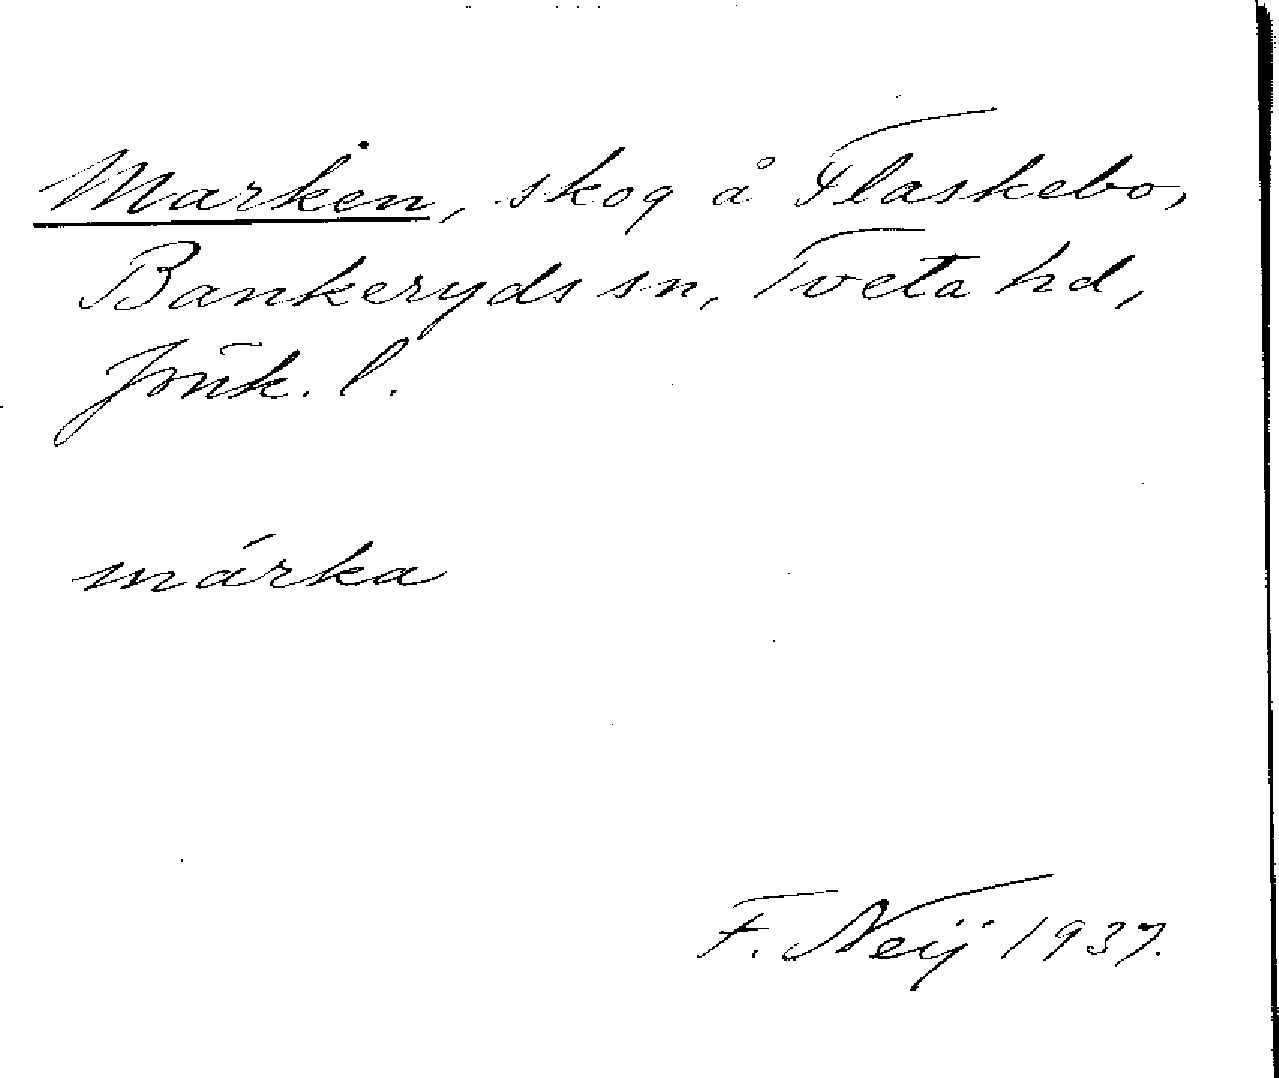 Marken, skog å Flaskebo,
Bankeryds sn, Tveta hd,
Jönk. l.
márka
F. Neij 1937.